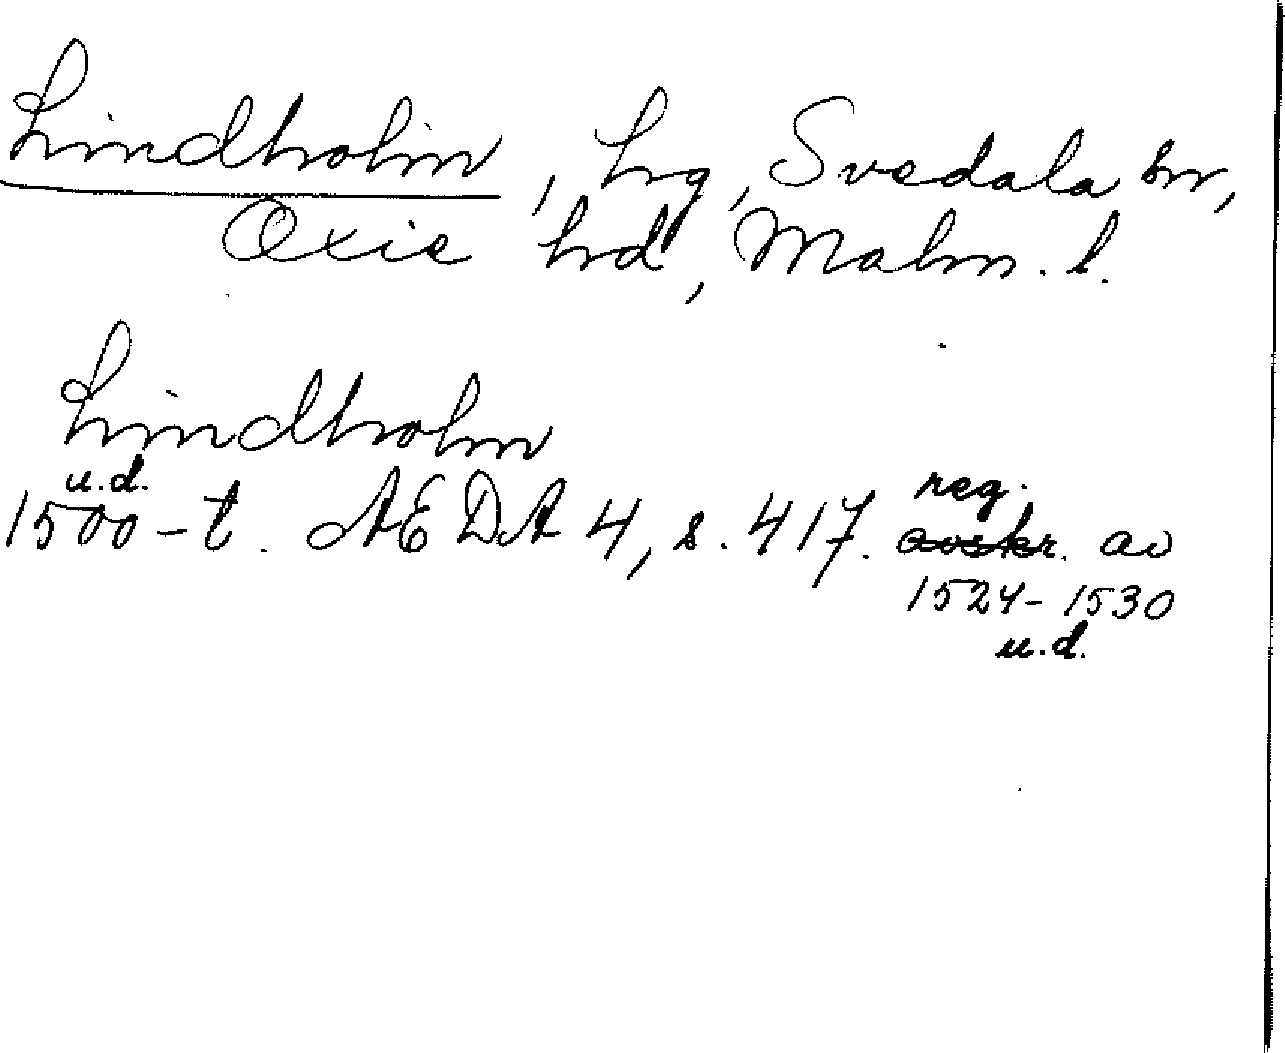 Lindholm, hrg, Svedala sn,
Oxie hd, Malm. l.
Lindholm
u.d.
1500-t. AEDA 4, s. 417. reg.
avskr. av
1524-1530
u.d.